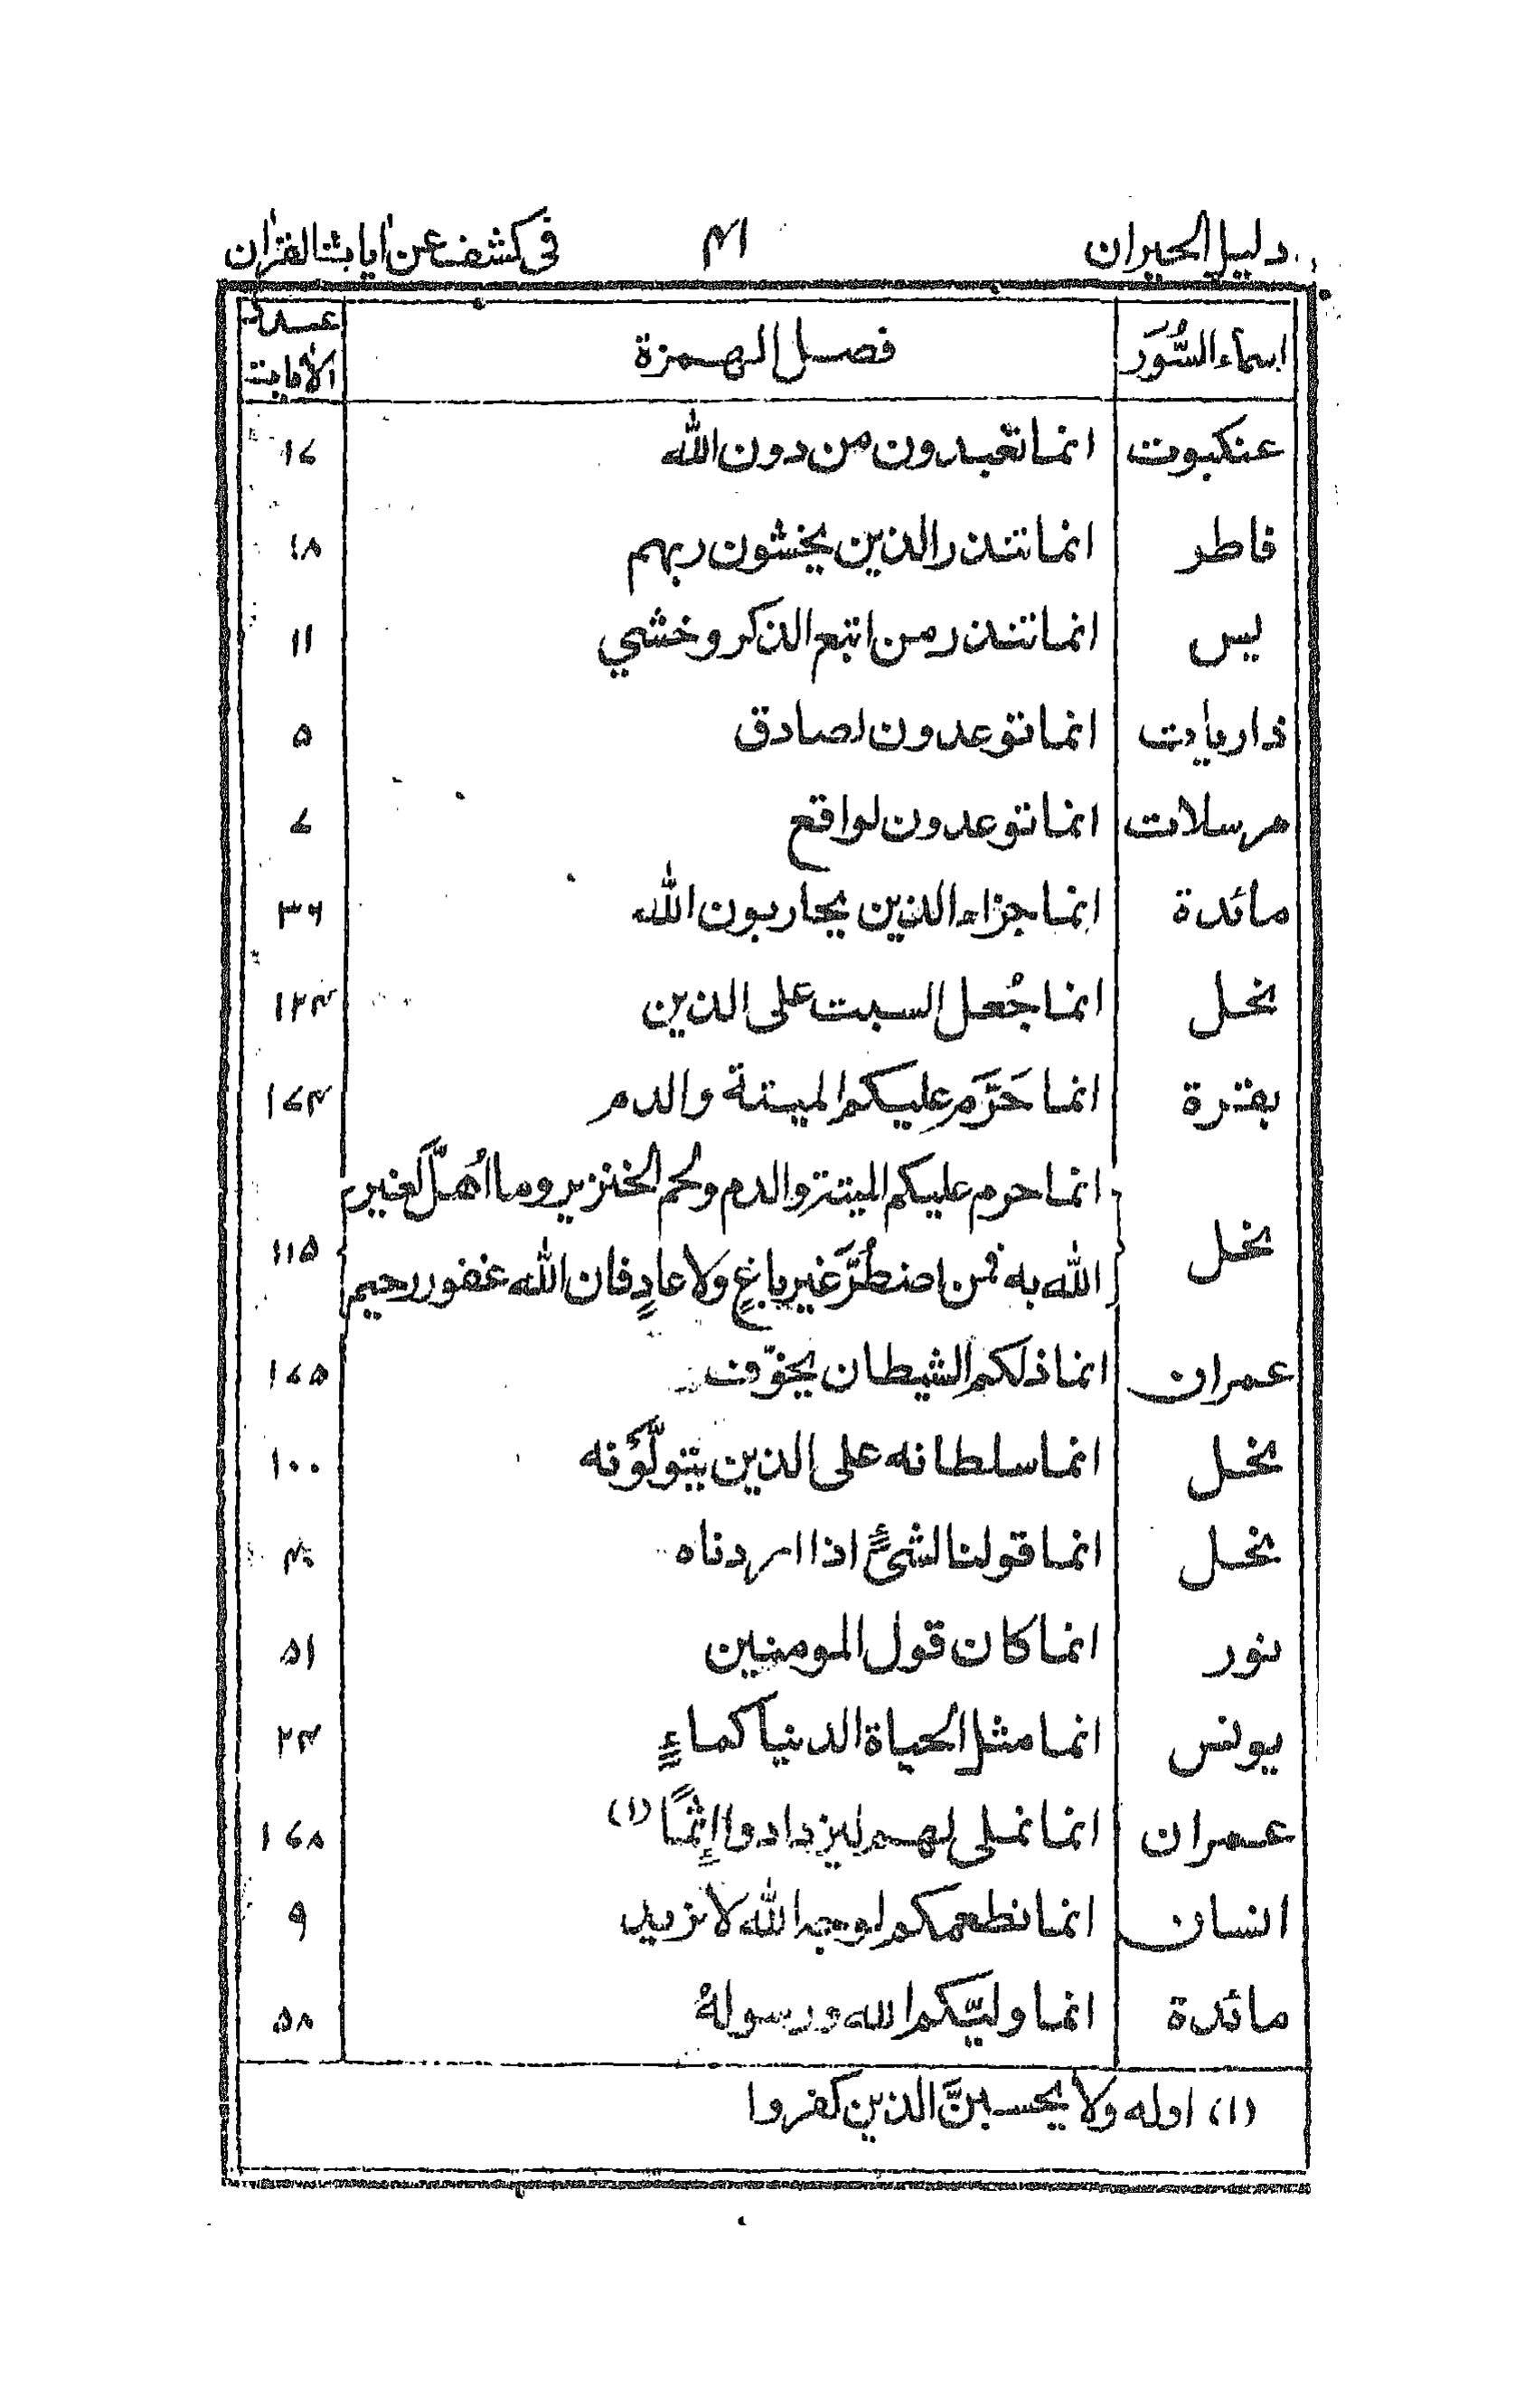 دليل الحيران ۴۱ فى كشف عن اٰيات القراٰن
اسماء السُّوَر فصل الهمزة عدد الاٰيات
عنكبوت انما تعبدون من دون الله ۱۷
فاطر انما تنذر الذين يخشون ربهم ۱۸
يس انما تنذر من اتبع الذكر وخشي ۱۱
ذاريات انما توعدون لصادق ۵
مرسلات انما توعدون لواقع ۷
مائدة انما جزاء الذين يحاربون الله ۳۶
نحل انما جُعل السبت على الذين ۱۲۴
بقرة انما حَرَّمَ عليكم الميتة والدم ۱۷۴
انما حرم عليكم الميتة والدم ولحم الخنزير وما اُهلَّ لغير
نحل ۱۱۵
الله به فمن اضطُرَّ غير باغٍ ولا عادٍ فان الله غفور رحيم
عمران انما ذلكم الشيطان يخوّف ۱۷۵
نحل انما سلطانه على الذين يتولَّوْنه ۱۰۰
نحل انما قولنا لشىءٍ اذا اردناه ۴۰
نور انما كان قول المومنين ۵۱
يونس انما مثل الحياة الدنيا كماءٍ ۲۴
عمران انما نملى لهم ليزدادوا إِثمًا (۱) ۱۷۸
انسان انما نطعمكم لوجه الله لا نريد ۹
مائدة انما وليّكم الله ورسولهُ ۵۸
(۱) اوله ولا يحسبنَّ الذين كفروا